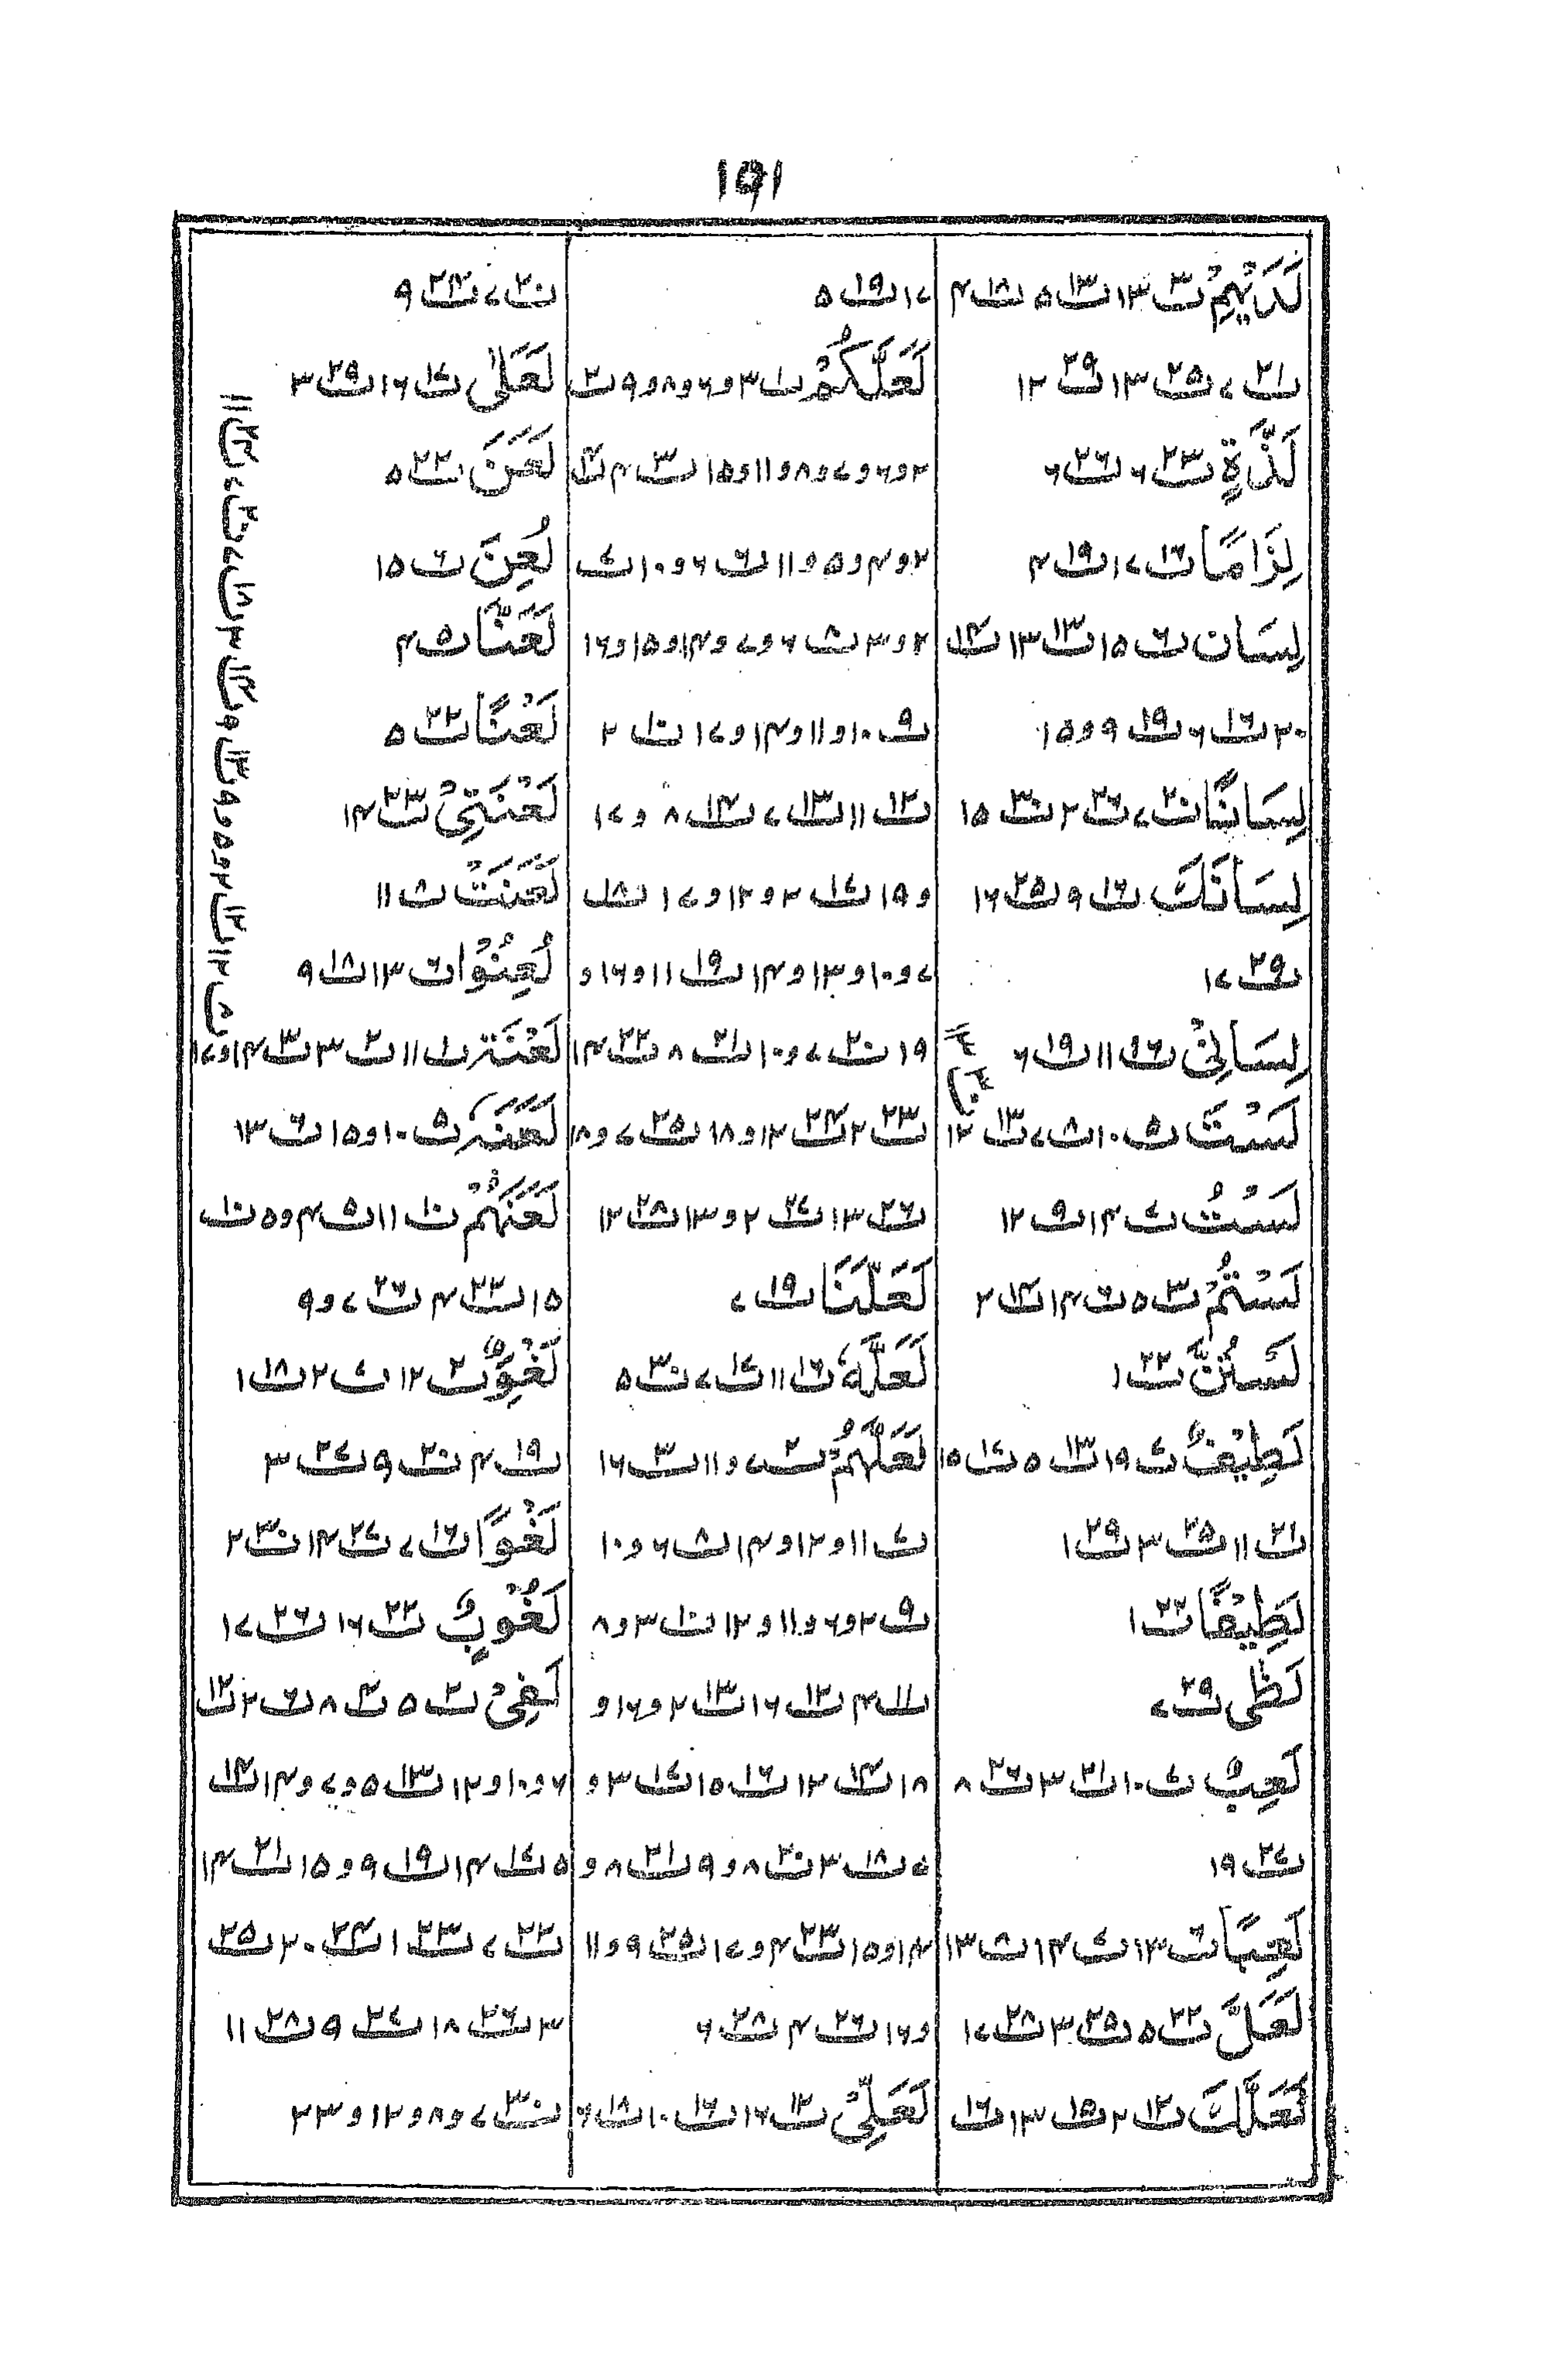 ۱۹۱
لَدَيْهِمْ ت۳ ۱۳ ت۱۳ ۵ ت۱۸ ۴
ت۲۱ ۷ ت۲۵ ۱۳ ت۲۹ ۱۲
لَذَّةٍ ت۲۳ ۶ ت۲۶ ۶
لِزَامًا ت۱۶ ۱۷ ت۱۹ ۴
لِسَان ت۶ ۱۵ ت۱۳ ۱۳ ت۱۴
۲۰ ت۱۶ ۶ ت۱۹ ۹ و ۱۵
لِسَانًا ت۲۰ ۷ ت۲۶ ۲ ت۳۰ ۱۵
لِسَانَكَ ت۱۶ ۹ ت۲۵ ۱۶
ت۲۹ ۱۷
لِسَانِيْ ت۱۶ ۱۱ ت۱۹ ۶
لَسْتَ ت۵ ۱۰ ت۸ ۷ ت۱۳ ۱۲
لَسْتُ ت۷ ۱۴ ت۹ ۱۲
لَسْتُمْ ت۳ ۵ ت۶ ۱۴ ت۱۴ ۲
لَسْتُنَّ ت۲۲ ۱
لَطِيْفٌ ت۷ ۱۹ ت۱۳ ۵ ت۱۷ ۱۵
ت۲۱ ۱۱ ت۲۵ ۳ ت۲۹ ۱
لَطِيْفًا ت۲۲ ۱
لَظٰى ت۲۹ ۷
لَعِبٌ ت۷ ۱۰ ت۲۱ ۳ ت۲۶ ۸
ت۲۷ ۱۹
لَعِبًا ت۶ ۱۳ ت۷ ۱۴ ت۸ ۱۳
لَعَلَّ ت۲۲ ۵ ت۲۵ ۳ ت۲۸ ۱۷
لَعَلَّكَ ت۱۲ ۲ ت۱۵ ۱۳ ت۱۶
۱۷ ت۱۹ ۵
لَعَلَّكُمْ ت۱ ۳ و ۶ و ۸ و ۹ ت۲
۲ و ۶ و ۷ و ۸ و ۱۱ و ۱۵ ت۳ ۴ ت۴
۲ و ۴ و ۵ و ۱۱ ت۶ ۶ و ۱۰ ت۷
۲ و ۳ ت۸ ۶ و ۷ و ۱۴ و ۱۵ و ۱۶
ت۹ ۱۰ و ۱۱ و ۱۴ و ۱۷ ت۱۰ ۲
ت۱۲ ۱۱ ت۱۳ ۷ ت۱۴ ۸ و ۱۷
و ۱۹ ت۱۷ ۲ و ۱۲ و ۱۷ ت۱۸
۷ و ۱۰ و ۱۳ و ۱۴ ت۱۹ ۱۱ و ۱۶ و
۱۹ ت۲۰ ۷ و ۱۰ ت۲۱ ۸ ت۲۲ ۱۴
ت۲۳ ۲ ت۲۴ ۱۲ و ۱۸ ت۲۵ ۷ و ۱۸
ت۲۶ ۱۳ ت۲۷ ۲ و ۱۳ ت۲۸ ۱۲
لَعَلَّنَا ت۱۹ ۷
لَعَلَّهٗ ت۱۶ ۱۱ ت۱۷ ۷ ت۳۰ ۵
لَعَلَّهُمْ ت۲ ۷ و ۱۱ ت۳ ۱۶
ت۷ ۱۱ و ۱۲ و ۱۴ ت۸ ۶ و ۱۰
ت۹ ۲ و ۶ و ۱۱ و ۱۲ ت۱۰ ۳ و ۸
ت۱۱ ۴ ت۱۲ ۱۶ ت۱۳ ۲ و ۱۶ و
۱۸ ت۱۴ ۱۲ ت۱۶ ۱۵ ت۱۷ ۳ و
۷ ت۱۸ ۳ ت۲۰ ۸ و ۹ ت۲۱ ۸ و
۱۴ و ۱۵ ت۲۳ ۴ و ۱۷ ت۲۵ ۹ و ۱۱
و ۱۶ ت۲۶ ۴ ت۲۸ ۶
لَعَلِّيْ ت۱۲ ۱۶ ت۱۶ ۱۰ ت۱۸ ۶
ت۲۰ ۷ ت۲۴ ۹
لَعَلٰى ت۱۷ ۱۶ ت۲۹ ۳
لَعَنَ ت۲۲ ۵
لُعِنَ ت۶ ۱۵
لَعَنَّا ت۵ ۴
لَعْنًا ت۲۲ ۵
لَعْنَتِيْ ت۲۳ ۱۴
لَعَنَتْ ت۸ ۱۱
لُعِنُوْا ت۶ ۱۳ ت۱۸ ۹
لَعْنَة ت۱ ۱۱ ت۲ ۳ ت۳ ۱۴ و ۱۷
لَعَنَهُ ت۵ ۱۰ و ۱۵ ت۶ ۱۳
لَعَنَهُمْ ت۱ ۱۱ ت۵ ۴ و ۵ ت۱۰
۱۵ ت۲۲ ۴ ت۲۶ ۷ و ۹
لَغْوِ ت۲ ۱۲ ت۷ ۲ ت۱۸ ۱
ت۱۹ ۴ ت۲۰ ۹ ت۲۷ ۳
لَغْوًا ت۱۶ ۷ ت۲۷ ۱۴ ت۳۰ ۲
لُغُوْبٍ ت۲۲ ۱۶ ت۲۶ ۱۷
لَفِيْ ت۲ ۵ ت۴ ۸ ت۶ ۲ ت۱۲
۶ و ۱۰ و ۱۲ ت۱۳ ۵ و ۷ و ۱۴ ت۱۴
۵ ت۱۷ ۱۴ ت۱۹ ۹ و ۱۵ ت۲۱ ۱۴
ت۲۲ ۷ ت۲۳ ۱ ت۲۴ ۲۰ ت۲۵
۳ ت۲۶ ۱۸ ت۲۷ ۹ ت۲۸ ۱۱
ت۳۰ ۷ و ۸ و ۱۲ و ۲۳